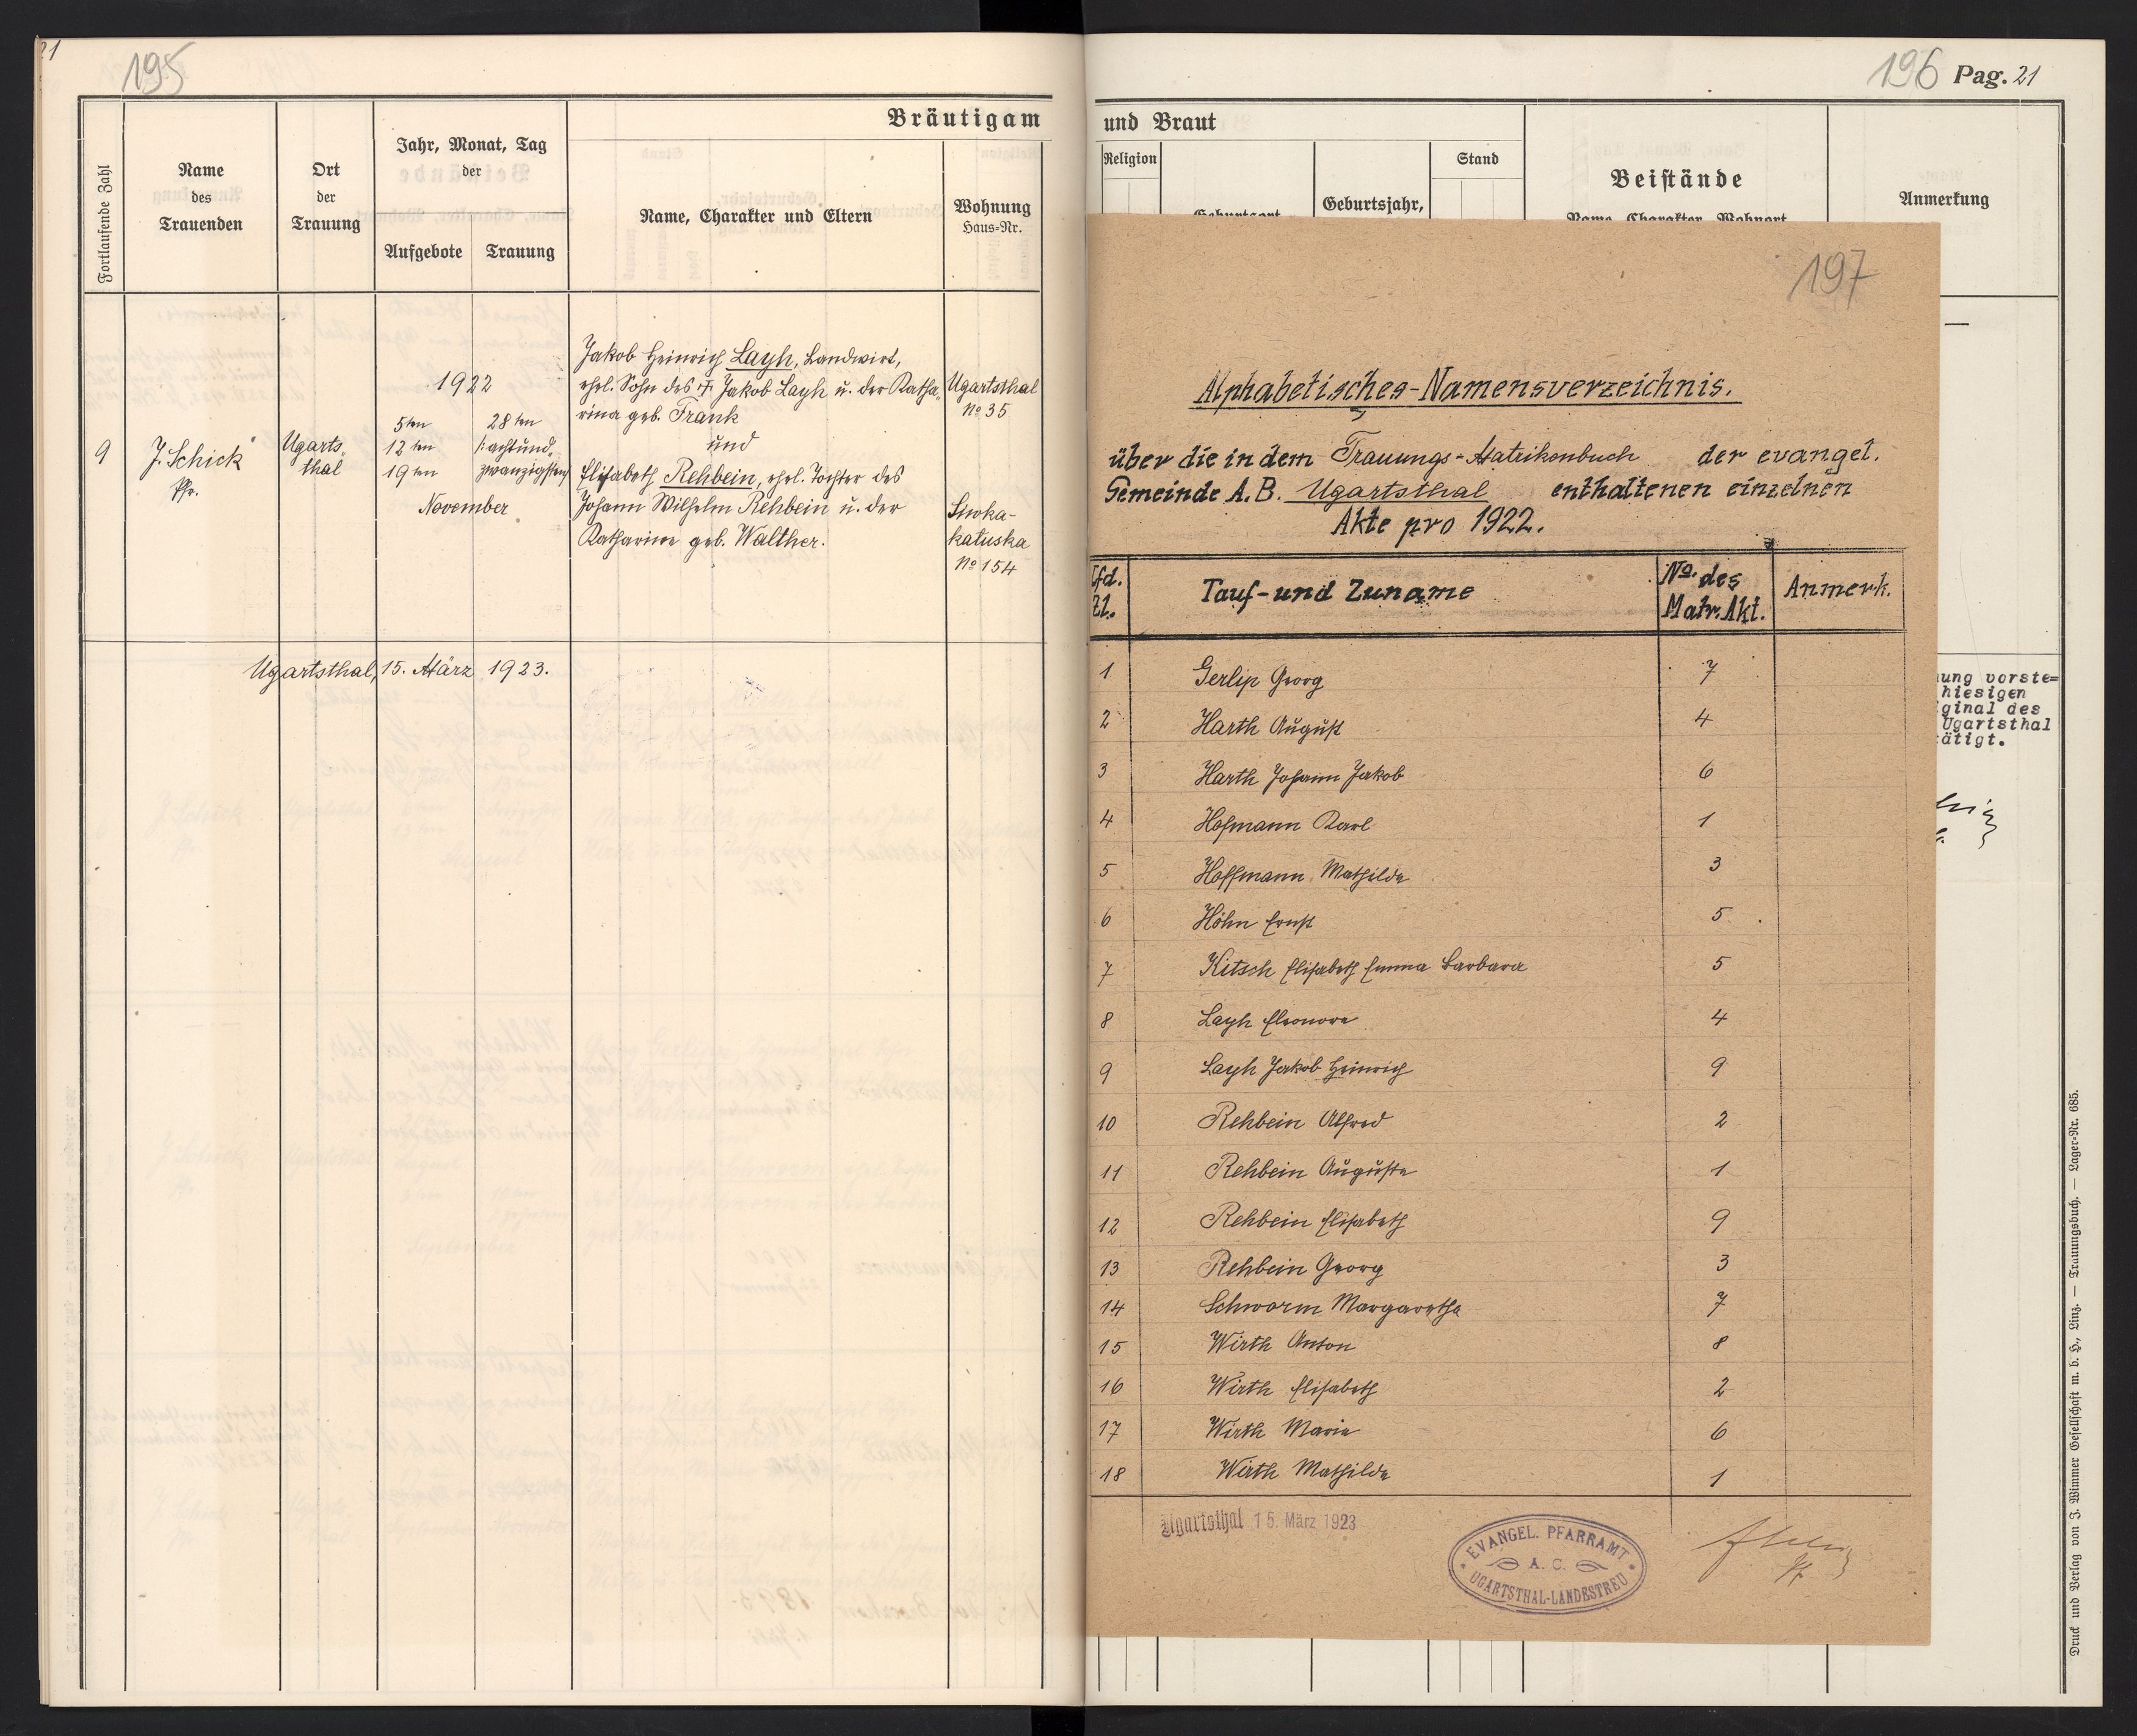 21
195
Bräutigam
Fortlaufende Zahl
Name
des
Trauenden
Ort
der
Trauung
Jahr, Monat, Tag
der
Aufgebote
Trauung
Name, Charakter und Eltern
Wohnung
Haus-Nr.
9
J. Schick
Pfr.
Ugarts-
thal
1922
5ten
12ten
19ten
28ten
/:achtund-
zwanzigsten
November
Jakob Heinrich Layh, Landwirt,
ehel. Sohn des + Jakob Layh u. der Katha-
rina geb. Frank
und
Elisabeth Rehbein, ehel. Tochter des
Johann Wilhelm Rehbein u. der
Katharine geb. Walther.
Ugartsthal
No 35
Siwka-
katuska
No 154
Ugartsthal, 15. März 1923.
196 Pag. 21
und Braut
Religion
Geburtsort
Geburtsjahr,
Stand
Beistände
Name, Charakter, Wohnort
Anmerkung
197
Alphabetisches-Namensverzeichnis.
über die in dem Trauungs-Matrikenbuch der evangel.
Gemeinde A.B. Ugartsthal enthaltenen einzelnen
Akte pro 1922.
Lfd.
Zl.
Tauf- und Zuname
No. des
Matr. Akt.
Anmerk.
1 Gerlip Georg 7
2 Harth August 4
3 Harth Johann Jakob 6
4 Hofmann Karl 1
5 Hoffmann Mathilde 3
6 Höhn Ernst 5
7 Kitsch Elisabeth Emma Barbara 5
8 Layh Eleonore 4
9 Layh Jakob Heinrich 9
10 Rehbein Alfred 2
11 Rehbein Auguste 1
12 Rehbein Elisabeth 9
13 Rehbein Georg 3
14 Schworm Margaretha 7
15 Wirth Anton 8
16 Wirth Elisabeth 2
17 Wirth Marie 6
18 Wirth Mathilde 1
Ugartsthal 15. März 1923
EVANGEL. PFARRAMT
A. C.
UGARTSTHAL-LANDESTREU
ung vorste=
hiesigen
ginal des
Ugartsthal
tätigt.
Druck und Verlag von J. Wimmer Gesellschaft m. b. H., Linz. — Trauungsbuch. — Lager-Nr. 685.